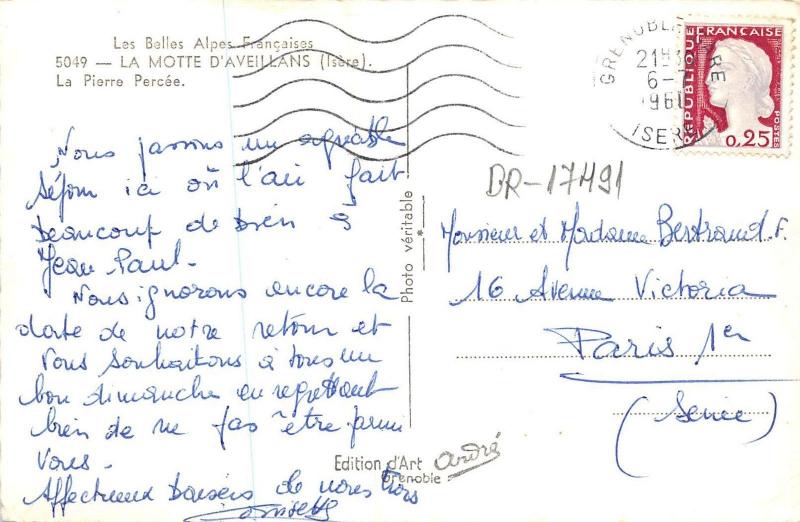 Les Belles Alpes Françaises
5049 — LA MOTTE D'AVEILLANS (Isère).
La Pierre Percée.
Nous passons un agréable
séjour ici où l'air fait
beaucoup de bien à
Jean Paul.
Nous ignorons encore la
date de notre retour et
vous souhaitons à tous un
bon dimanche en regrettant
bien de ne pas être parmi
vous.
Affectueux baisers de nous trois
Photo véritable
*
Edition d'Art André
Grenoble
GRENOBLE GARE
21H30
6-7
196
ISERE
REPUBLIQUE FRANÇAISE
POSTES
0,25
BR-17491
Monsieur et Madame Bertrand. F.
16 Avenue Victoria
Paris 1er
(Seine)